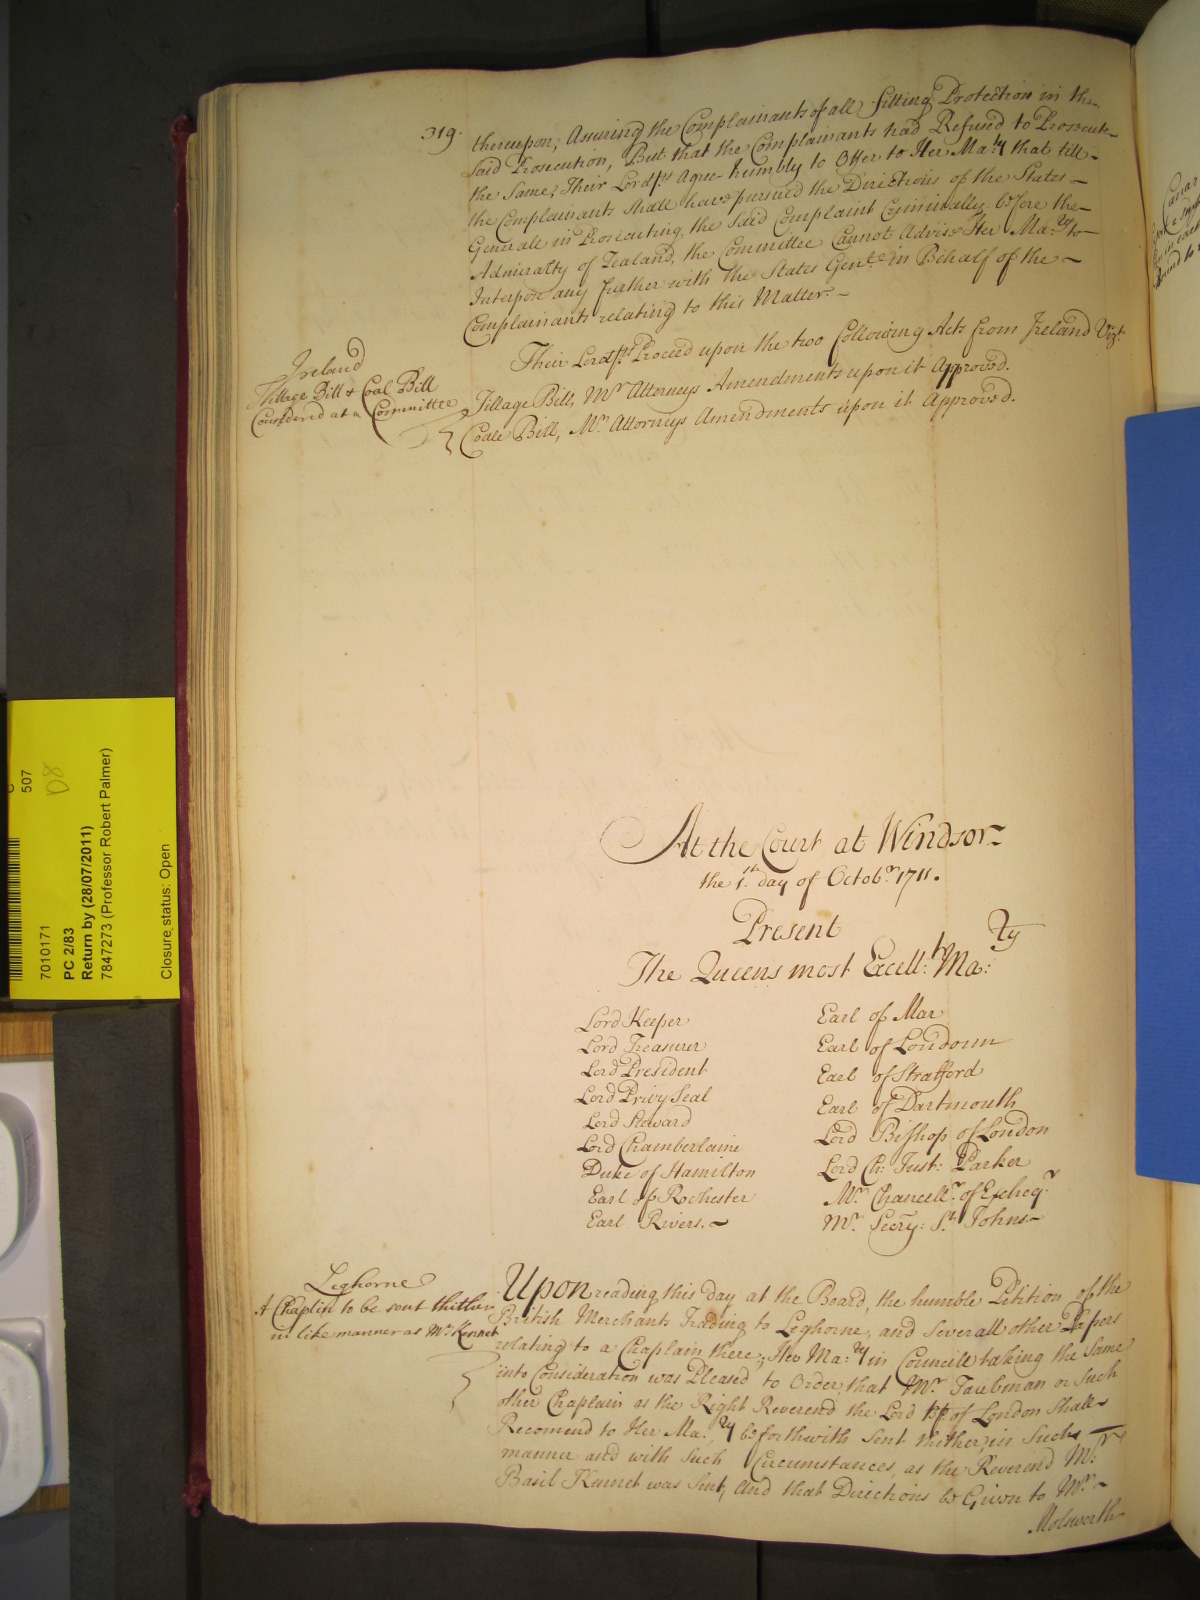 319.
thereupon, Assuring the Complainants of all fitting Protection in the
Said Prosecution, But that the Complainants had Refused to Prosecute
the Same, Their Lordps Agree humbly to Offer to Her Maty that till
the Complainants Shall have pursued the Directions of the States
Generale in Prosecuting the Said Complaint Criminally before the
Admiralty of Zealand, the Committee Cannot Advise Her Maty to
Interpose any further with the States Genle in Behalf of the
Complainants relating to this Matter.
Ireland
Tillage Bill & Coal Bill
Considered at a Committee
Their Lordpps Proceed upon the two following Acts from Ireland Vizt
Tillage Bill, Mr Attorneys Amendments upon it Approved.
Coale Bill, Mr Attorneys Amendments upon it Approved.
At the Court at Windsor
the 1st day of Octobr 1711.
Present
The Queens most Excellt Maty
Lord Keeper
Lord Treasurer
Lord President
Lord Privy Seal
Lord Steward
Lord Chamberlaine
Duke of Hamilton
Earl of Rochester
Earl Rivers.
Earl of Mar
Earl of Loudoun
Earl of Strafford
Earl of Dartmouth
Lord Bishop of London
Lord Ch: Just: Parker
Mr Chancellr of Excheqr
Mr Secry: St Johns
Leghorne
A Chaplin to be sent thither
in like manner as Mr Kennet
Upon reading this day at the Board, the humble Petition of the
British Merchants Trading to Leghorne, and Severall other Papers
relating to a Chaplain there, Her Maty in Councill taking the Same
into Consideration was Pleased to Order, that Mr Taubman or Such
other Chaplain as the Right Reverend the Lord Bp of London Shall
Recomend to Her Maty be forthwith Sent thither, in Such
manner and with Such Circumstances, as the Reverend Mr
Basil Kennet was Sent, And that Directions be Given to Mr
Molsworth
507
D8
7010171
PC 2/83
Return by (28/07/2011)
7847273 (Professor Robert Palmer)
Closure status: Open